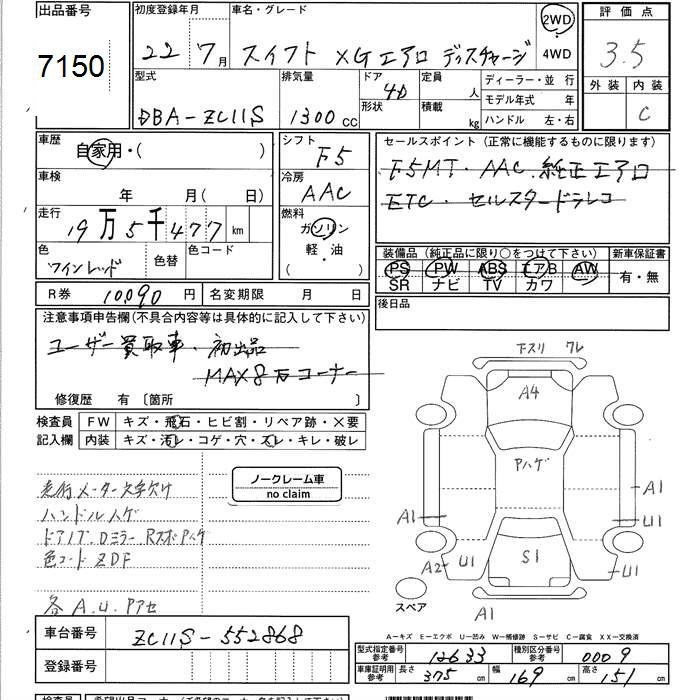 出品番号
7150
初度登録年月
22 7月
車名・グレード
スイフト XGエアロ ディスチャージ
2WD
4WD
評価点
3.5
外装 内装
C
型式
DBA-ZC11S
排気量
1300 CC
ドア
4D
形状
定員
人
積載
kg
ディーラー・並 行
モデル年式 年
ハンドル 左・右
車歴
自家用・( )
車検
年 月( 日)
走行
19万5千477 km
色
ワインレッド
色替
色コード
シフト
F5
冷房
AAC
燃料
ガソリン
軽・油
( )
セールスポイント (正常に機能するものに限ります)
F5MT・AAC.純正エアロ
ETC・セルスタードラレコ
装備品 (純正品に限り○をつけて下さい)
新車保証書
PS PW ABS エアB AW
SR ナビ TV カワ
有・無
R券 10090 円
名変期限 月 日
後日品
注意事項申告欄(不具合内容等は具体的に記入して下さい)
ユーザー買取車.初出品
MAX8万コーナー
修復歴 有 〔箇所 〕
検査員
記入欄
FW キズ・飛石・ヒビ割・リペア跡・×要
内装 キズ・汚レ・コゲ・穴・スレ・キレ・破レ
走行メーター文字欠け
ハンドルハゲ
ドアノブ.Dミラー RスポPハゲ
色コード ZDF
各 A.U.Pアセ
ノークレーム車
no claim
下スリ ワレ
A4
Pハゲ
A1
U1
A1
A2
U1
S1
A1
スペア
A-キズ E-エクボ U-凹み W-補修跡 S-サビ C-腐食 XX-交換済
車台番号 ZC11S-552868
登録番号
型式指定番号
参考
12633
種別区分番号
参考
0009
車庫証明用
参考
長さ 375 cm
幅 169 cm
高さ 151 cm